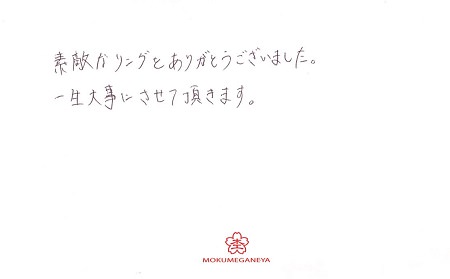 素敵なリングをありがとうございました。
一生大事にさせて頂きます。
MOKUMEGANEYA